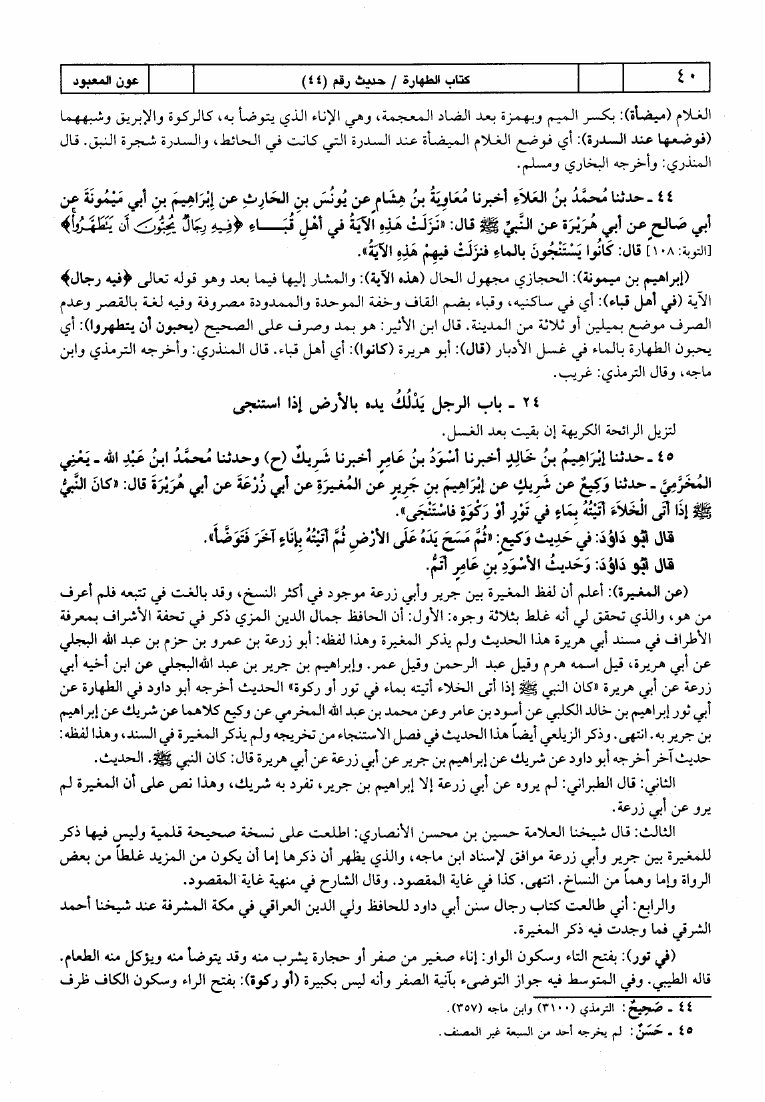 ٤٠
كتاب الطهارة / حديث رقم (٤٤)
عون المعبود
الغلام (ميضأة): بكسر الميم وبهمزة بعد الضاد المعجمة، وهي الإناء الذي يتوضأ به، كالركوة والإبريق وشبههما
(فوضعها عند السدرة): أي فوضع الغلام الميضأة عند السدرة التي كانت في الحائط، والسدرة شجرة النبق. قال
المنذري: وأخرجه البخاري ومسلم.
٤٤ ـ حدثنا مُحمَّدُ بنُ العَلاَءِ أخبرنا مُعَاوِيَةُ بنُ هِشَامٍ عن يُونُسَ بنِ الحَارِثِ عن إِبْرَاهِيمَ بنِ أبي مَيْمُونَةَ عن
أبي صَالحٍ عن أبي هُرَيْرَةَ عن النَّبيِّ ﷺ قال: «نَزَلَتْ هَذِهِ الآيَةُ في أهْلِ قُبَــاءٍ ﴿فِيهِ رِجَالٌ يُحِبُّونَ أَن يَتَطَهَّرُواْ﴾
[التوبة: ١٠٨] قال: كَانُوا يَسْتَنْجُونَ بالماءِ فنزلَتْ فيهِمْ هذِهِ الآيَةُ».
(إبراهيم بن ميمونة): الحجازي مجهول الحال (هذه الآية): والمشار إليها فيما بعد وهو قوله تعالى ﴿فيه رجال﴾
الآية (في أهل قباء): أي في ساكنيه، وقباء بضم القاف وخفة الموحدة والممدودة مصروفة وفيه لغة بالقصر وعدم
الصرف موضع بميلين أو ثلاثة من المدينة. قال ابن الأثير: هو بمد وصرف على الصحيح (يحبون أن يتطهروا): أي
يحبون الطهارة بالماء في غسل الأدبار (قال): أبو هريرة (كانوا): أي أهل قباء. قال المنذري: وأخرجه الترمذي وابن
ماجه، وقال الترمذي: غريب.
٢٤ ـ باب الرجل يَدْلُكُ يده بالأرض إذا استنجى
لتزيل الرائحة الكريهة إن بقيت بعد الغسل.
٤٥ ـ حدثنا إبْرَاهِيمُ بنُ خَالِدٍ أخبرنا أسْوَدُ بنُ عَامِرٍ أخبرنا شَرِيكٌ (ح) وحدثنا مُحمَّدُ ابنُ عَبْدِ الله ـ يَعْنِي
المُخَرِّمِيَّ ـ حدثنا وَكِيعٌ عن شَرِيكٍ عن إبْرَاهِيمَ بنِ جَرِيرٍ عن المُغِيرَةِ عن أبي زُرْعَةَ عن أبي هُرَيْرَةَ قال: «كانَ النَّبيُّ
ﷺ إِذَا أتَى الْخَلاَءَ أتَيْتُهُ بِمَاءٍ في تَوْرٍ أوْ رَكْوَةٍ فاسْتَنْجَى».
قال أبُو دَاوُدَ: في حَدِيثِ وَكيعٍ: «ثُمَّ مَسَحَ يَدَهُ عَلَى الأرْضِ ثُمَّ أتَيْتُهُ بِإِنَاءٍ آخَرَ فَتَوَضَّأ».
قال أبُو دَاوُدَ: وَحَديثُ الأسْوَدِ بنِ عَامِرٍ أتَمُّ.
(عن المغيرة): أعلم أن لفظ المغيرة بين جرير وأبي زرعة موجود في أكثر النسخ، وقد بالغت في تتبعه فلم أعرف
من هو، والذي تحقق لي أنه غلط بثلاثة وجوه: الأول: أن الحافظ جمال الدين المزي ذكر في تحفة الأشراف بمعرفة
الأطراف في مسند أبي هريرة هذا الحديث ولم يذكر المغيرة وهذا لفظه: أبو زرعة بن عمرو بن حزم بن عبد الله البجلي
عن أبي هريرة، قيل اسمه هرم وقيل عبد الرحمن وقيل عمر. وإبراهيم بن جرير بن عبد اللهالبجلي عن ابن أخيه أبي
زرعة عن أبي هريرة «كان النبي ﷺ إذا أتى الخلاء أتيته بماء في تور أو ركوة» الحديث أخرجه أبو داود في الطهارة عن
أبي ثور إبراهيم بن خالد الكلبي عن أسود بن عامر وعن محمد بن عبد الله المخرمي عن وكيع كلاهما عن شريك عن إبراهيم
بن جرير به. انتهى. وذكر الزيلعي أيضاً هذا الحديث في فصل الاستنجاء من تخريجه ولم يذكر المغيرة في السند، وهذا لفظه:
حديث آخر أخرجه أبو داود عن شريك عن إبراهيم بن جرير عن أبي زرعة عن أبي هريرة قال: كان النبي ﷺ. الحديث.
الثاني: قال الطبراني: لم يروه عن أبي زرعة إلا إبراهيم بن جرير، تفرد به شريك، وهذا نص على أن المغيرة لم
يرو عن أبي زرعة.
الثالث: قال شيخنا العلامة حسين بن محسن الأنصاري: اطلعت على نسخة صحيحة قلمية وليس فيها ذكر
للمغيرة بين جرير وأبي زرعة موافق لإسناد ابن ماجه، والذي يظهر أن ذكرها إما أن يكون من المزيد غلطاً من بعض
الرواة وإما وهماً من النساخ. انتهى. كذا في غاية المقصود. وقال الشارح في منهية غاية المقصود.
والرابع: أني طالعت كتاب رجال سنن أبي داود للحافظ ولي الدين العراقي في مكة المشرفة عند شيخنا أحمد
الشرقي فما وجدت فيه ذكر المغيرة.
(في تور): بفتح التاء وسكون الواو: إناء صغير من صفر أو حجارة يشرب منه وقد يتوضأ منه ويؤكل منه الطعام.
قاله الطيبي. وفي المتوسط فيه جواز التوضىء بآنية الصفر وأنه ليس بكبيرة (أو ركوة): بفتح الراء وسكون الكاف ظرف
٤٤ ـ صَحِيحٌ: الترمذي (٣١٠٠) وابن ماجه (٣٥٧).
٤٥ ـ حَسَنٌ: لم يخرجه أحد من السبعة غير المصنف.